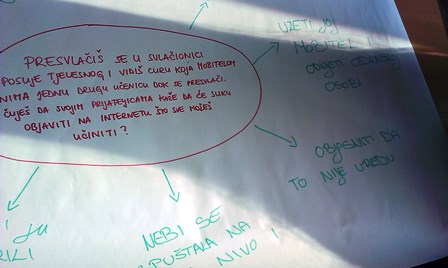 PRESVLAČIŠ SE U SVLAČIONICI
POSLJE TJELESNOG I VIDIŠ CURU KOJA MOBITELOM
SNIMA JEDNU DRUGU UČENICU DOK SE PRESVLAČI.
ČUJEŠ DA SVOJIM PRIJATELJICAMA KAŽE DA ĆE SLIKU
OBJAVITI NA INTERNETU ŠTO SVE MOŽEŠ
UČINITI?
UZETI JOJ
MOBITEL I
ODNJETI ODRASLOJ
OSOBI
OBJASNITI DA
TO NIJE UREDU
NEBI SE
SPUŠTALA NA
NIVO I